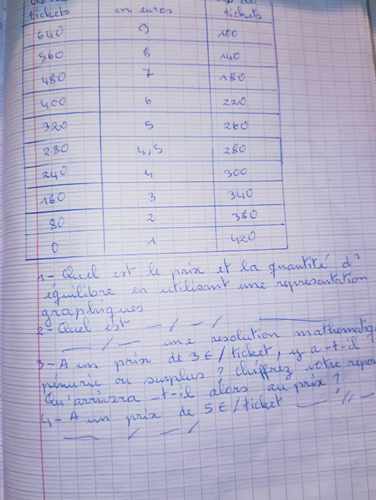 tickets en euros tickets
640 9 100
560 8 140
480 7 180
400 6 220
320 5 260
280 4,5 280
240 4 300
160 3 340
80 2 380
0 1 420
1- Quel est le prix et la quantité d'
équilibre en utilisant une représentation
graphiques
2- Quel est — / — / —
— / — / — une resolution mathematiq
3- A un prix de 3€/ticket, y a-t-il
penurie ou surplus ? chiffrez votre repon
Qu'arrivera-t-il alors au prix ?
4- A un prix de 5€/ticket — " —
— / — / —